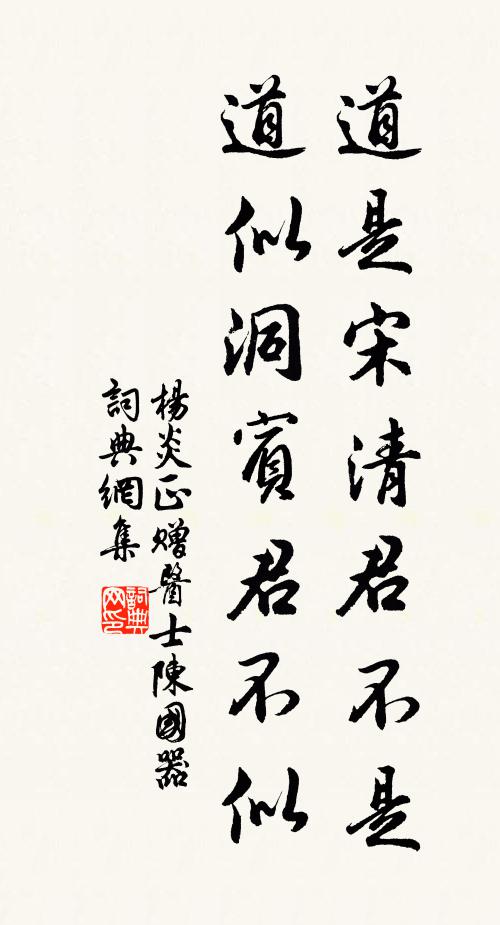 道是宋清君不是
道似洞賓君不似
楊炎正贈醫士陳國器
詞典網集
詞典网印